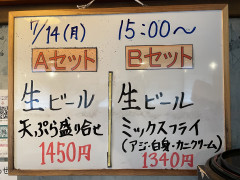 7/14(月) 15:00〜
Aセット
生ビール
天ぷら盛り合せ
1450円
Bセット
生ビール
ミックスフライ
(アジ・白身・カニクリーム)
1340円